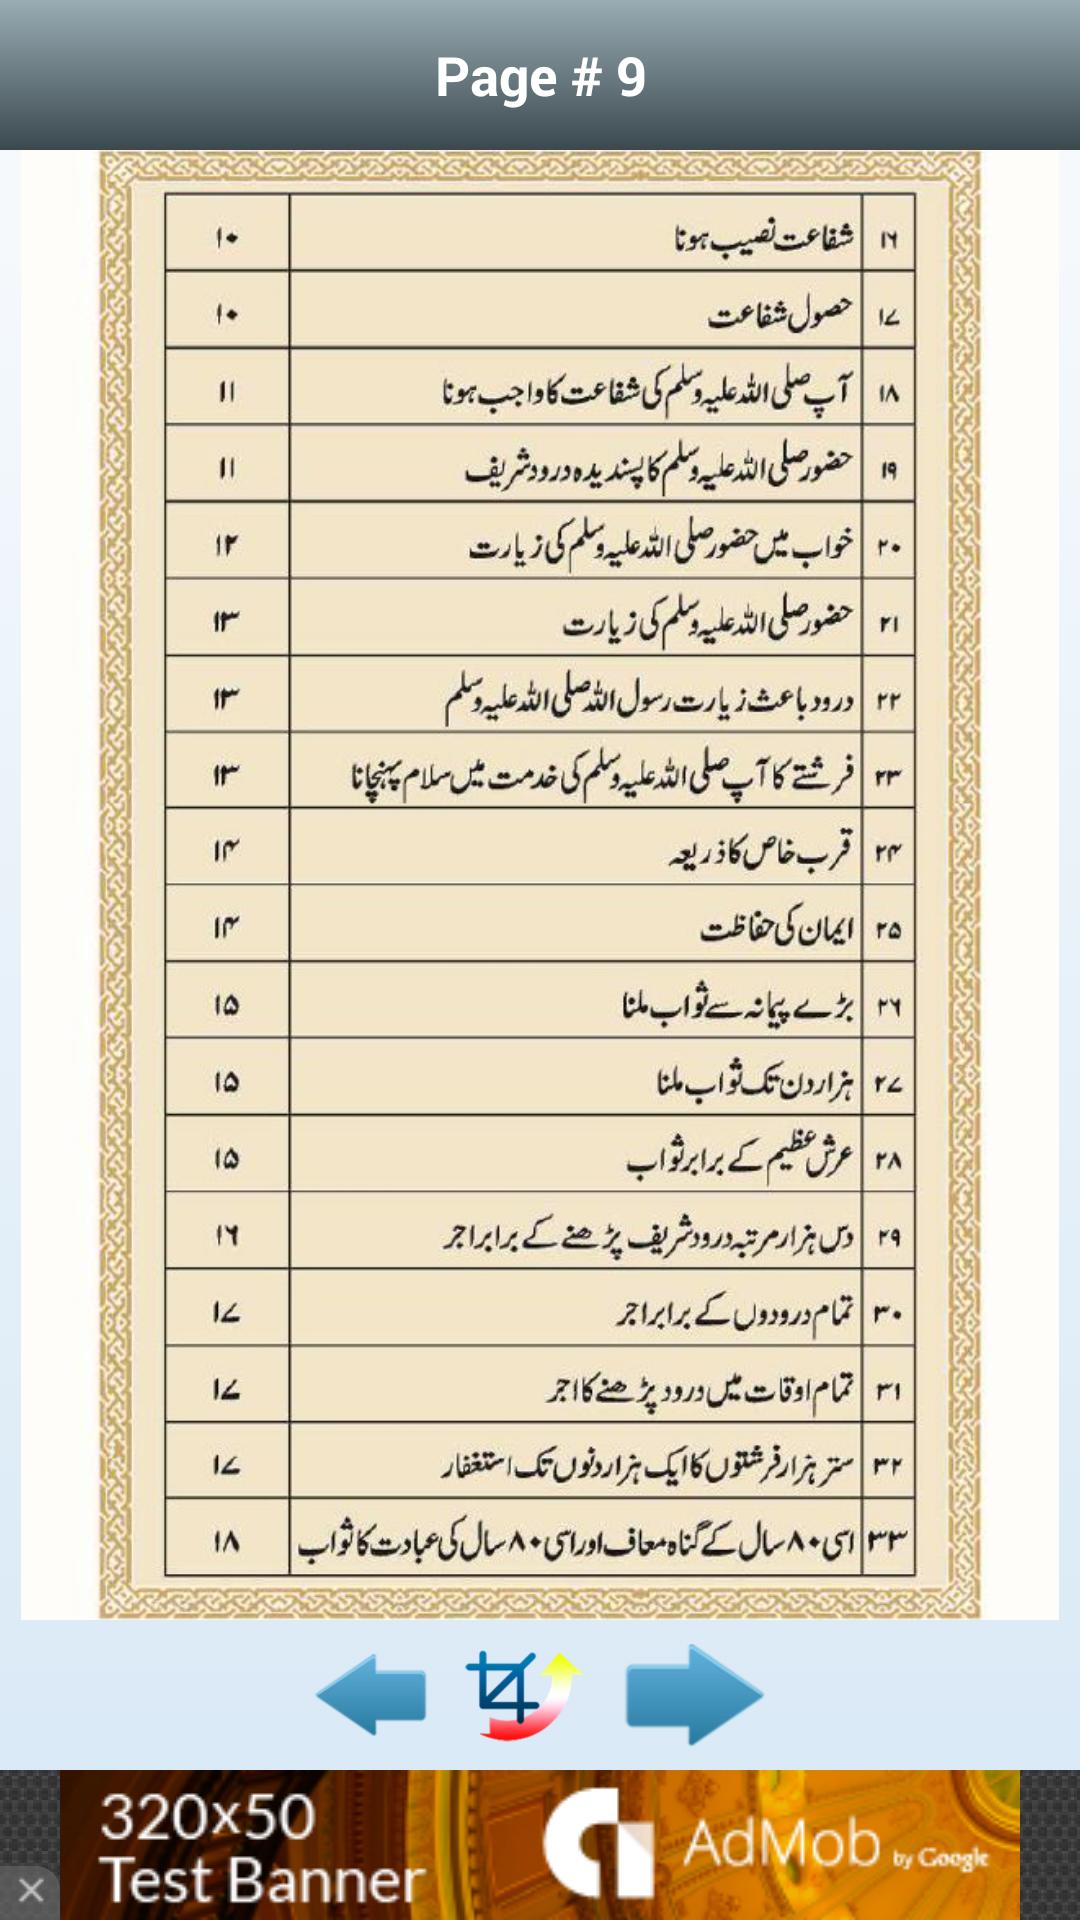 Page # 9
۱۶ شفاعت نصیب ہونا ۱۰
۱۷ حصول شفاعت ۱۰
۱۸ آپ صلی اللہ علیہ وسلم کی شفاعت کا واجب ہونا ۱۱
۱۹ حضور صلی اللہ علیہ وسلم کا پسندیدہ درود شریف ۱۱
۲۰ خواب میں حضور صلی اللہ علیہ وسلم کی زیارت ۱۲
۲۱ حضور صلی اللہ علیہ وسلم کی زیارت ۱۳
۲۲ درود باعث زیارت رسول اللہ صلی اللہ علیہ وسلم ۱۳
۲۳ فرشتے کا آپ صلی اللہ علیہ وسلم کی خدمت میں سلام پہنچانا ۱۳
۲۴ قرب خاص کا ذریعہ ۱۴
۲۵ ایمان کی حفاظت ۱۴
۲۶ بڑے پیمانہ سے ثواب ملنا ۱۵
۲۷ ہزار دن تک ثواب ملنا ۱۵
۲۸ عرش عظیم کے برابر ثواب ۱۵
۲۹ دس ہزار مرتبہ درود شریف پڑھنے کے برابر اجر ۱۶
۳۰ تمام درودوں کے برابر اجر ۱۷
۳۱ تمام اوقات میں درود پڑھنے کا اجر ۱۷
۳۲ ستر ہزار فرشتوں کا ایک ہزار دنوں تک استغفار ۱۷
۳۳ اسی ۸۰ سال کے گناہ معاف اور اسی ۸۰ سال کی عبادت کا ثواب ۱۸
320x50
Test Banner
AdMob by Google